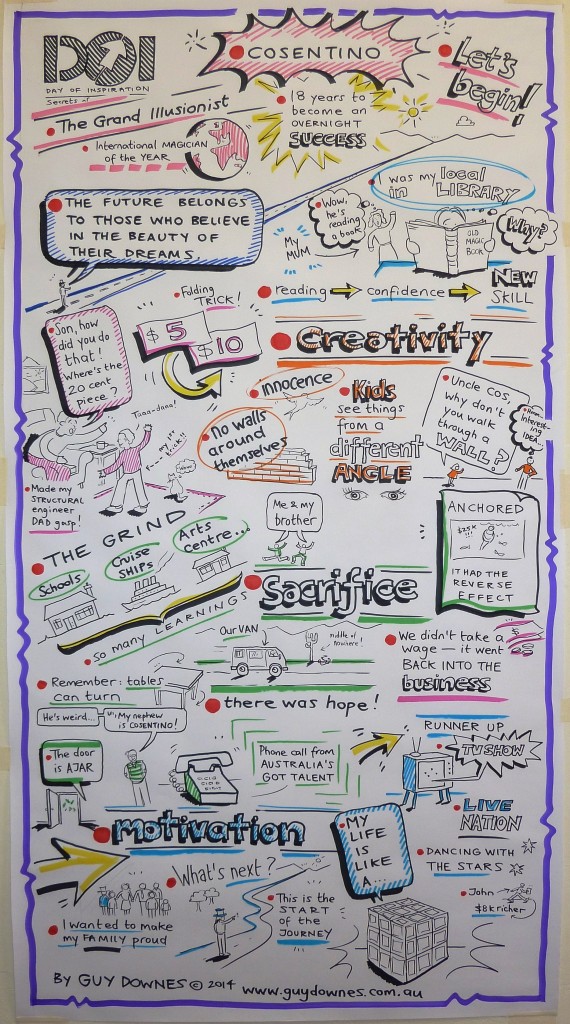 DOI
DAY OF INSPIRATION
Secrets of
The Grand Illusionist
International MAGICIAN
of the YEAR
COSENTINO
Let's
begin!
18 years to
become an
OVERNIGHT
SUCCESS
THE FUTURE BELONGS
TO THOSE WHO BELIEVE
IN THE BEAUTY OF
THEIR DREAMS
I was my local
in LIBRARY
Wow,
he's
reading
a book!
My
MUM
OLD
MAGIC
BOOK
Why?
reading
confidence
NEW
SKILL
Folding
TRICK!
$5
$10
Son, how
did you do
that!
Where's the
20 cent
piece?
Taaa-daaa!
Made my
STRUCTURAL
engineer
DAD gasp!
Creativity
innocence
No walls
around
themselves
Kids
see things
from a
different
ANGLE
Uncle Cos,
why don't
you walk
through a
WALL?
Hmm...
Interest-
ing
IDEA...
THE GRIND
Schools
Cruise
SHIPS
Arts
centre...
so many LEARNINGS
Me & my
brother
Sacrifice
ANCHORED
$25K
!!!
IT HAD THE
REVERSE
EFFECT
Our VAN
middle of
nowhere!
We didn't take a
wage — it went
BACK INTO THE
business
Remember: tables
can turn
there was hope!
He's weird...
My nephew
is COSENTINO!
The door
is AJAR
Phone call from
AUSTRALIA'S
GOT TALENT
RUNNER UP
TV SHOW
LIVE
NATION
DANCING WITH
THE STARS
John
$8k richer
motivation
What's next?
I wanted to make
my FAMILY proud
This is the
START
of the
JOURNEY
MY
LIFE
IS
LIKE
A...
BY GUY DOWNES © 2014
www.guydownes.com.au